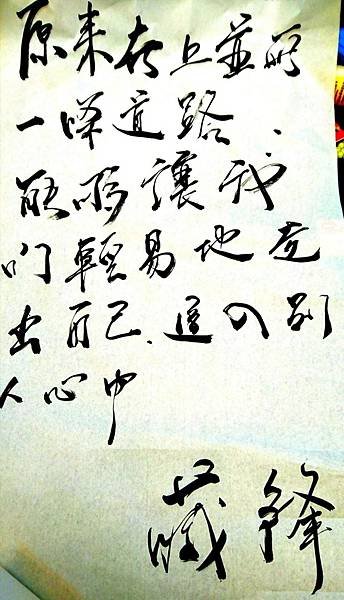 原來世上並無
一條道路、
能夠讓我
們輕易地走
出自己、進入別
人心中
藏鋒